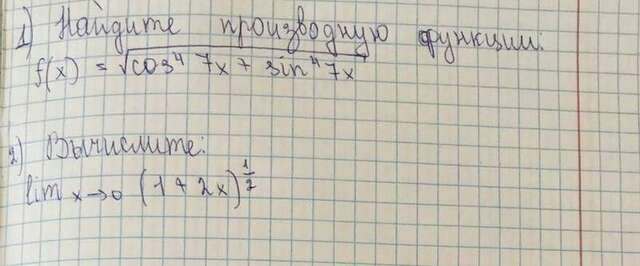 1) Найдите производную функции:
f(x) = √cos⁴ 7x + sin⁴ 7x
2) Вычислите:
lim x→0 (1 + 2x)^(1/7)